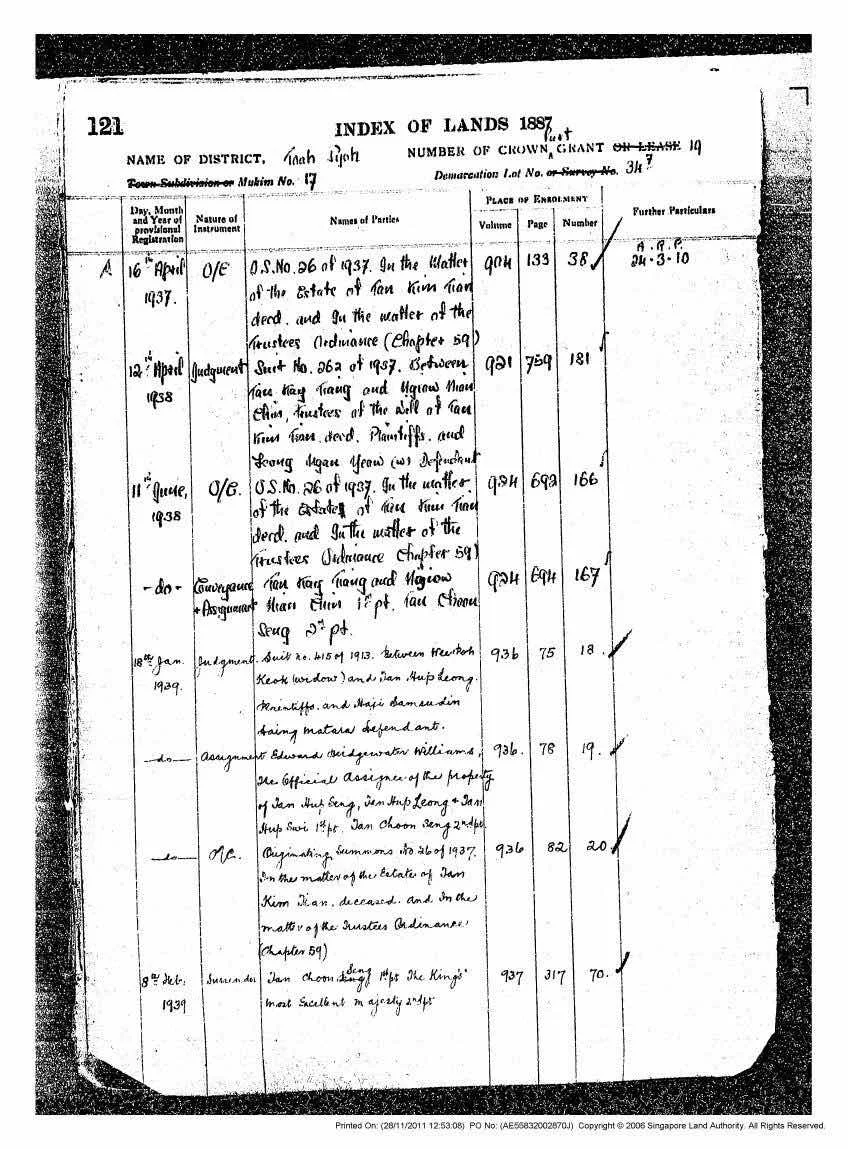 121
INDEX OF LANDS 1887
NAME OF DISTRICT, Toah Pyoh NUMBER OF CROWN Part GRANT OR LEASE 19
Town Subdivision or Mukim No. 17 Demarcation Lot No. or Survey No. 34⁷
Day, Month and Year of provisional Registration
Nature of Instrument
Names of Parties
PLACE OF ENROLMENT
Volume Page Number
Further Particulars
A 16th April O/C O.S. No. 26 of 1937. In the Matter 904 133 38 A.R.P. 24.3.10
1937. of the Estate of Tan Kim Tian
decd. and In the matter of the
Trustees Ordinance (Chapter 59)
12th April Judgment Suit No. 262 of 1937. Between 921 759 181
1938 Tan Kay Tiang and Ngiow Nian
Chin, Trustees of the Will of Tan
Kim Tian. decd. Plaintiffs. and
Leong Ngan Yeow (w) Defendant
11th June, O/C. O.S. No. 26 of 1937. In the matter 924 692 166
1938 of the Estate of Tan Kim Tian
decd. and In the matter of the
Trustees Ordinance Chapter 59)
- do - Conveyance Tan Kay Tiang and Ngiow 924 694 167
+ Assignment Nian Chin 1st pt. Tan Choon
Seng 2nd pt.
18th Jan. Judgment. Suit no. 415 of 1913. Between 936 75 18.
1939. Keok (widow) and Tan Hup Leong.
Plaintiffs. and Haji Samsudin
Defendant.
— do — Assignment Edward Bridgewater Williams, 936. 78 19.
The Official Assignee of the property
of Tan Hup Seng, Tan Hup Leong + Tan
Hup Swi 1st pt. Tan Choon Seng 2nd pt.
— do — O/C. Originating Summons No 26 of 1937. 936 82 20
In the matter of the Estate of Tan
Kim Tian, deceased. and In the
matter of the Trustees Ordinance
(Chapter 59)
8th Feb. Surrender Tan Choon Seng 1st pt The King's 937 317 70.
1939 most Excellent majesty 2nd pt
Printed On: (28/11/2011 12:53:08) PO No: (AE55832002870J) Copyright © 2006 Singapore Land Authority. All Rights Reserved.